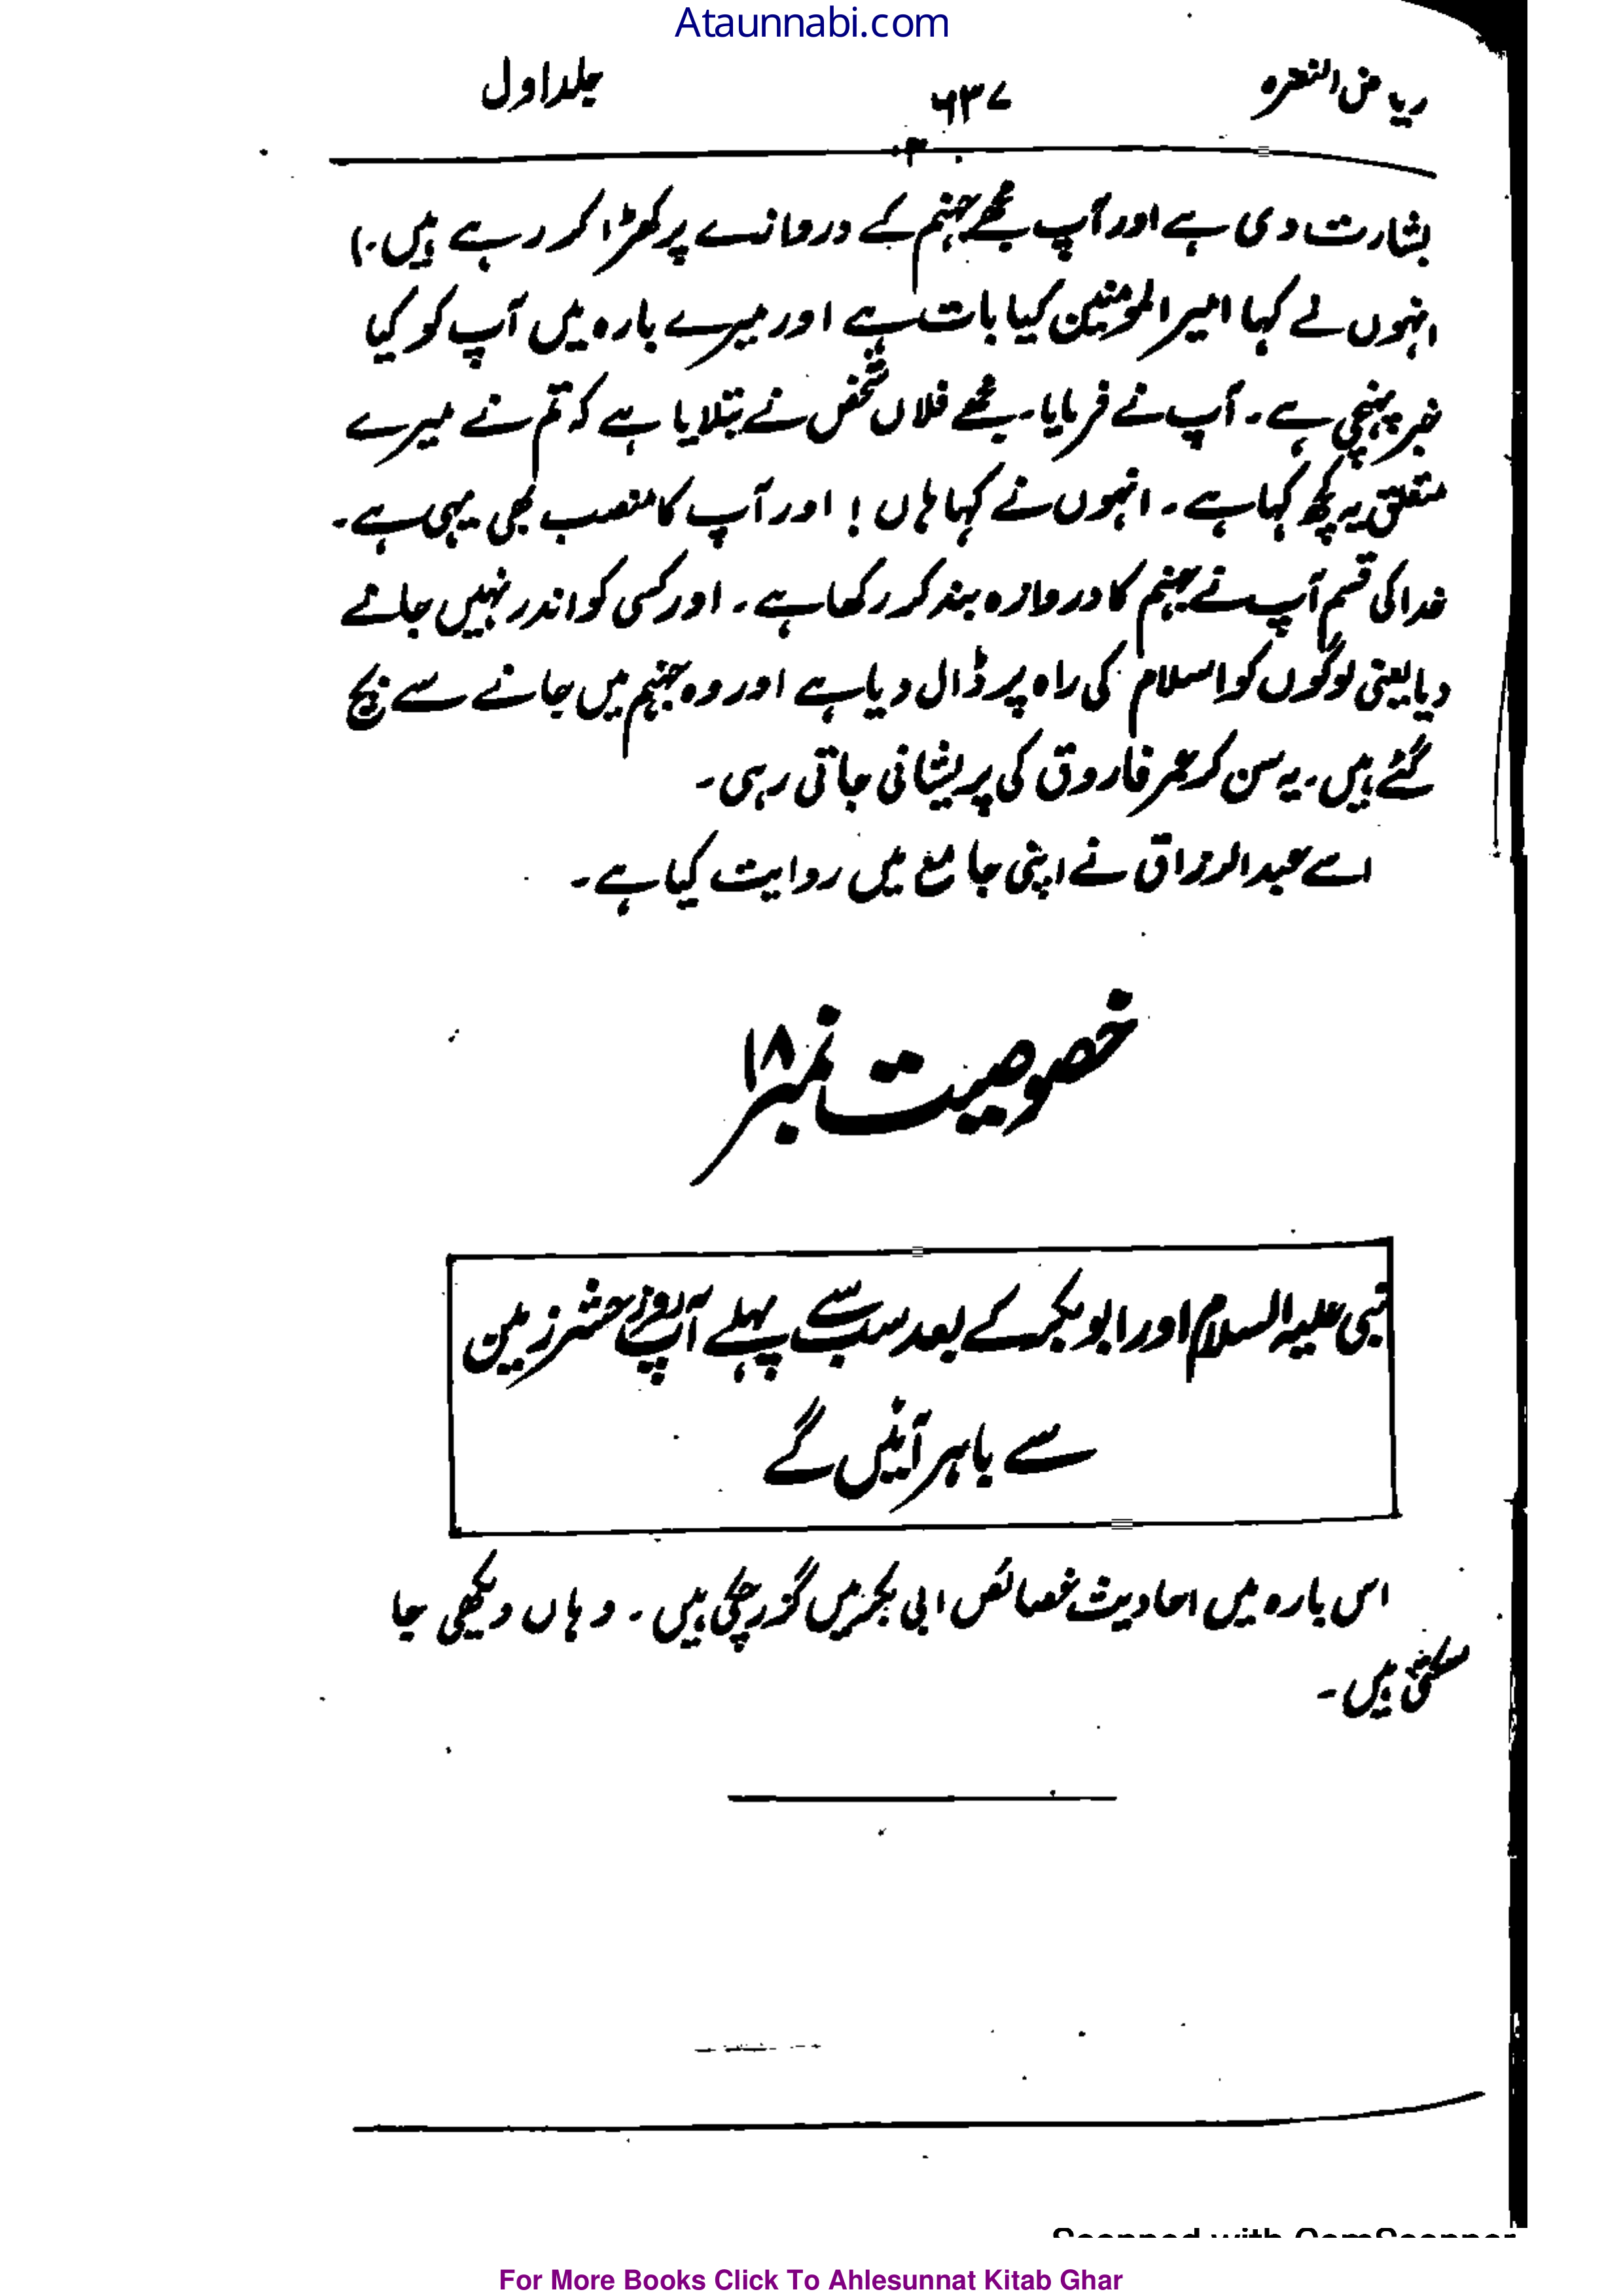 Ataunnabi.com
ریاض النضرہ ۶۳۷ جلد اول
بشارت دی ہے اور آپ مجھے جہنم کے دروازے پر کھڑا کر رہے ہیں۔)
انہوں نے کہا امیر المومنین کیا بات ہے اور میرے بارہ میں آپ کو کیا
خبر پہنچی ہے۔ آپ نے فرمایا۔ مجھے فلاں شخص نے بتلایا ہے کہ تم نے میرے
متعلق یہ کچھ کہا ہے۔ انہوں نے کہا ہاں! اور آپ کا منصب بھی یہی ہے۔
خدا کی قسم آپ نے جہنم کا دروازہ بند کر رکھا ہے۔ اور کسی کو اندر نہیں جانے
دیا یعنی لوگوں کو اسلام کی راہ پر ڈال دیا ہے اور وہ جہنم میں جانے سے بچ
گئے ہیں۔ یہ سن کر عمر فاروق کی پریشانی جاتی رہی۔
اسے عبدالرزاق نے اپنی جامع میں روایت کیا ہے۔
خصوصیت نمبر ۱۸
نبی علیہ السلام اور ابو بکر کے بعد سب سے پہلے آپ روز حشر زمین
سے باہر آئیں گے
اس بارہ میں احادیث خصائص ابی بکر میں گزر چکی ہیں۔ وہاں دیکھی جا
سکتی ہیں۔
Scanned with CamScanner
For More Books Click To Ahlesunnat Kitab Ghar